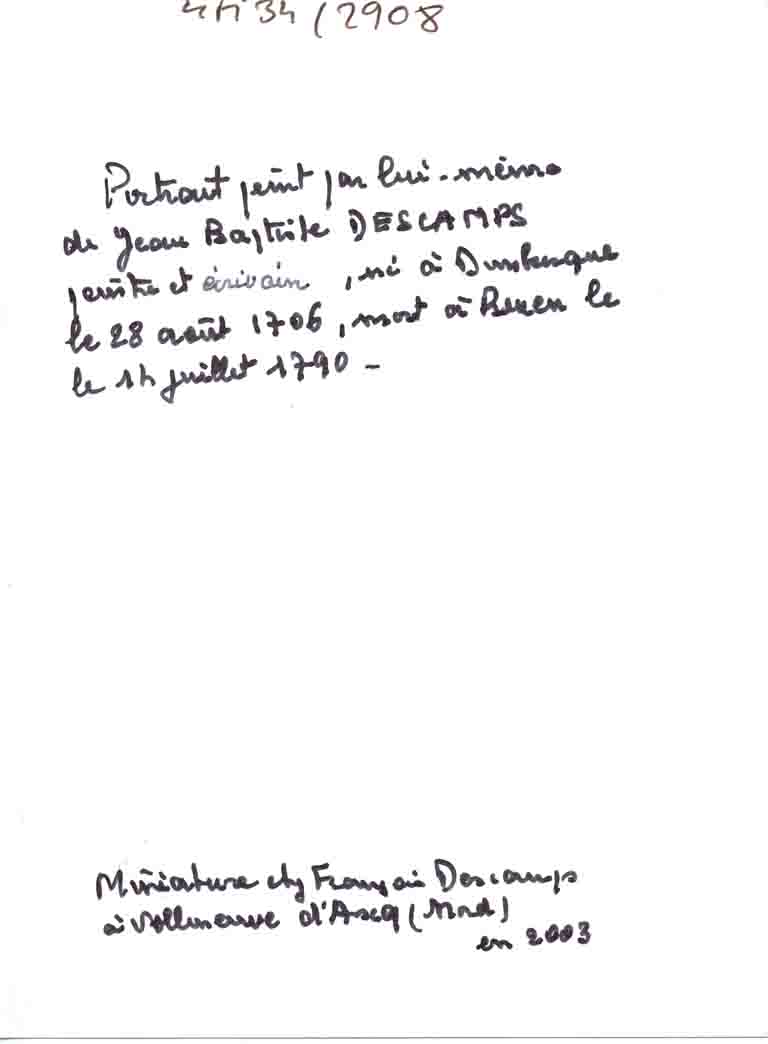 34 / 2908
Portrait peint par lui-même
de Jean Baptiste DESCAMPS
peintre et écrivain, né à Dunkerque
le 28 août 1706, mort à Rouen le
le 14 juillet 1790 -
Miniature chez François Descamps
à Villeneuve d'Ascq (Nord)
en 2003